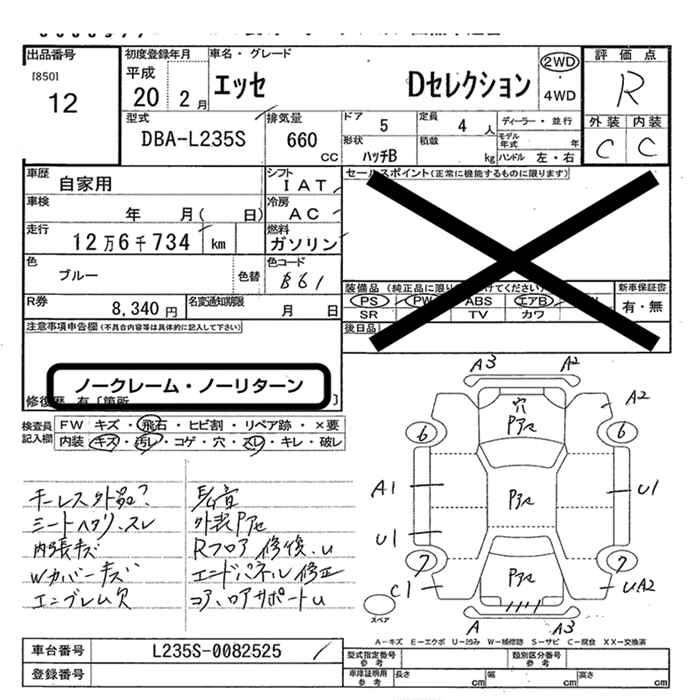 出品番号
[850]
12
初度登録年月
平成
20 2 月
車名・グレード
エッセ Dセレクション
2WD
4WD
評価点
R
外装 内装
C C
型式
DBA-L235S
排気量
660
CC
ドア
5
定員
4 人
ディーラー・並行
形状
ハッチB
積載
kg
モデル年式 年
ハンドル 左・右
車歴
自家用
シフト
IAT
セールスポイント(正常に機能するものに限ります)
車検
年 月( 日)
冷房
AC
走行
12万6千734 km
燃料
ガソリン
色
ブルー
色替
色コード
B61
装備品(純正品に限り
けてください)
新車保証書
PS PW ABS エアB
有・無
SR TV カワ
R券
8,340 円
名変通知期限
月 日
後日品
注意事項申告欄(不具合内容等は具体的に記入して下さい)
ノークレーム・ノーリターン
修復歴 有[箇所 ]
検査員記入欄
FW キズ・飛石・ヒビ割・リペア跡・×要
内装 キズ・汚レ・コゲ・穴・スレ・キレ・破レ
キーレス外品?
シートヘタリ、スレ
内張キズ
Wカバーキズ
エンブレム欠
外装Pアセ
Rフロア修復、U
エンドパネル修正
コア、ロアサポートU
A3 A2
A2
穴
Pアセ
6 6
A1
Pアセ
U1
U1
7 7
Pアセ
C1
UA2
スペア
A A3
A-キズ E-エクボ U-凹み W-補修跡 S-サビ C-腐食 XX-交換済
車台番号
L235S-0082525
登録番号
型式指定番号
参考
類別区分番号
参考
車庫証明用
参考
長さ cm
幅 cm
高さ cm